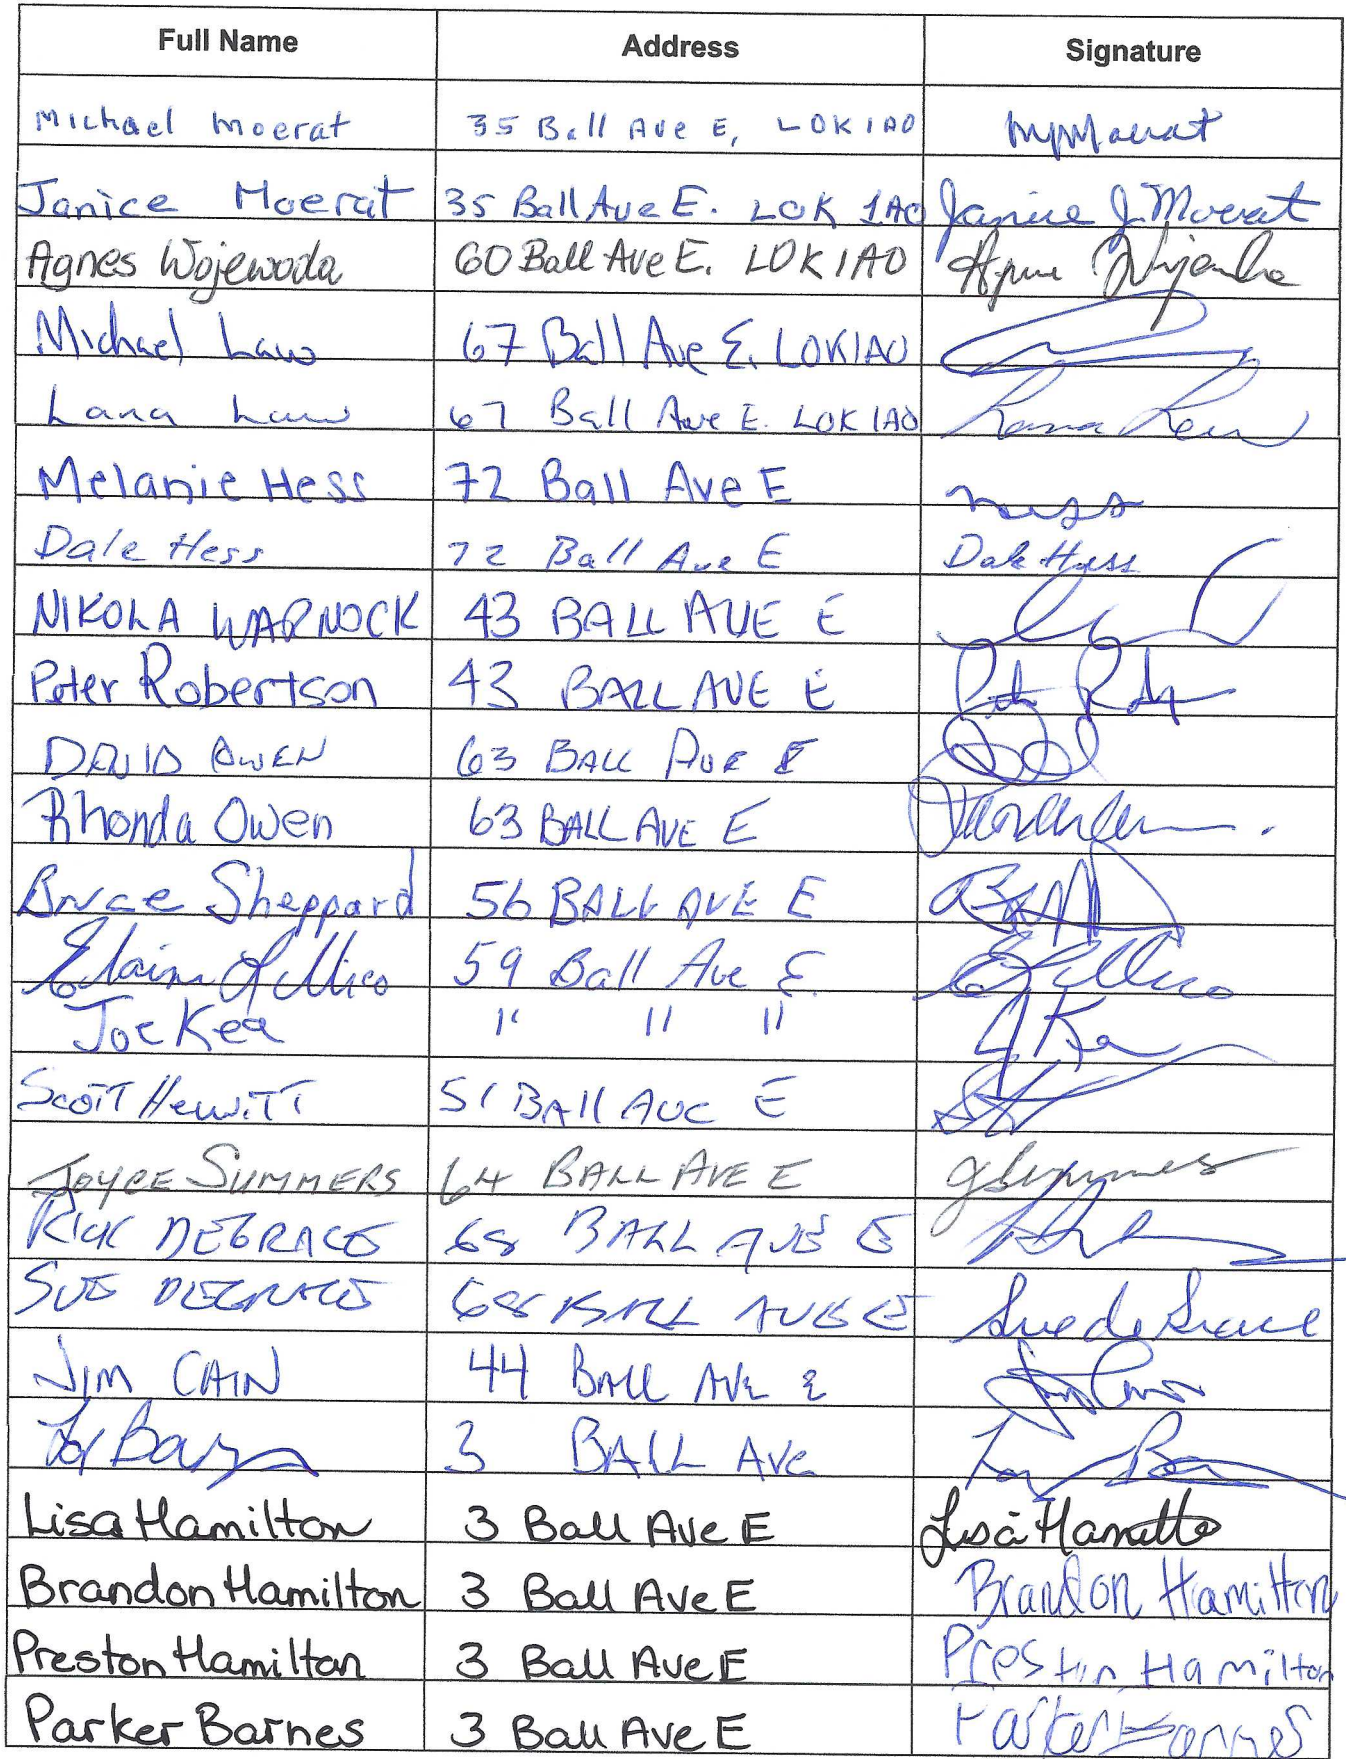 Full Name Address Signature
Michael Moerat 35 Ball Ave E, L0K1A0 MMoerat
Janice Moerat 35 Ball Ave E. L0K 1A0 Janice J. Moerat
Agnes Wojewoda 60 Ball Ave E. L0K1A0
Michael Law 67 Ball Ave E. L0K1A0
Lana Law 67 Ball Ave E. L0K1A0 Lana Law
Melanie Hess 72 Ball Ave E
Dale Hess 72 Ball Ave E Dale Hess
NIKOLA WARNOCK 43 BALL AVE E
Peter Robertson 43 BALL AVE E
DAVID OWEN 63 BALL AVE E
Rhonda Owen 63 BALL AVE E
Bruce Sheppard 56 BALL AVE E
Elaine Lellico 59 Ball Ave E. E Lellico
Joe Kea " " " J Kea
Scott Hewitt 51 BAll AVE E
JOYCE SUMMERS 64 BALL AVE E JSummers
RICK DEGRACE 68 BALL AVE E
SUE DEGRACE 68 BALL AVE E Sue de Grace
JIM CAIN 44 BALL AVE E
3 BALL Ave
Lisa Hamilton 3 Ball Ave E Lisa Hamilton
Brandon Hamilton 3 Ball Ave E Brandon Hamilton
Preston Hamilton 3 Ball Ave E Preston Hamilton
Parker Barnes 3 Ball Ave E Parker Barnes